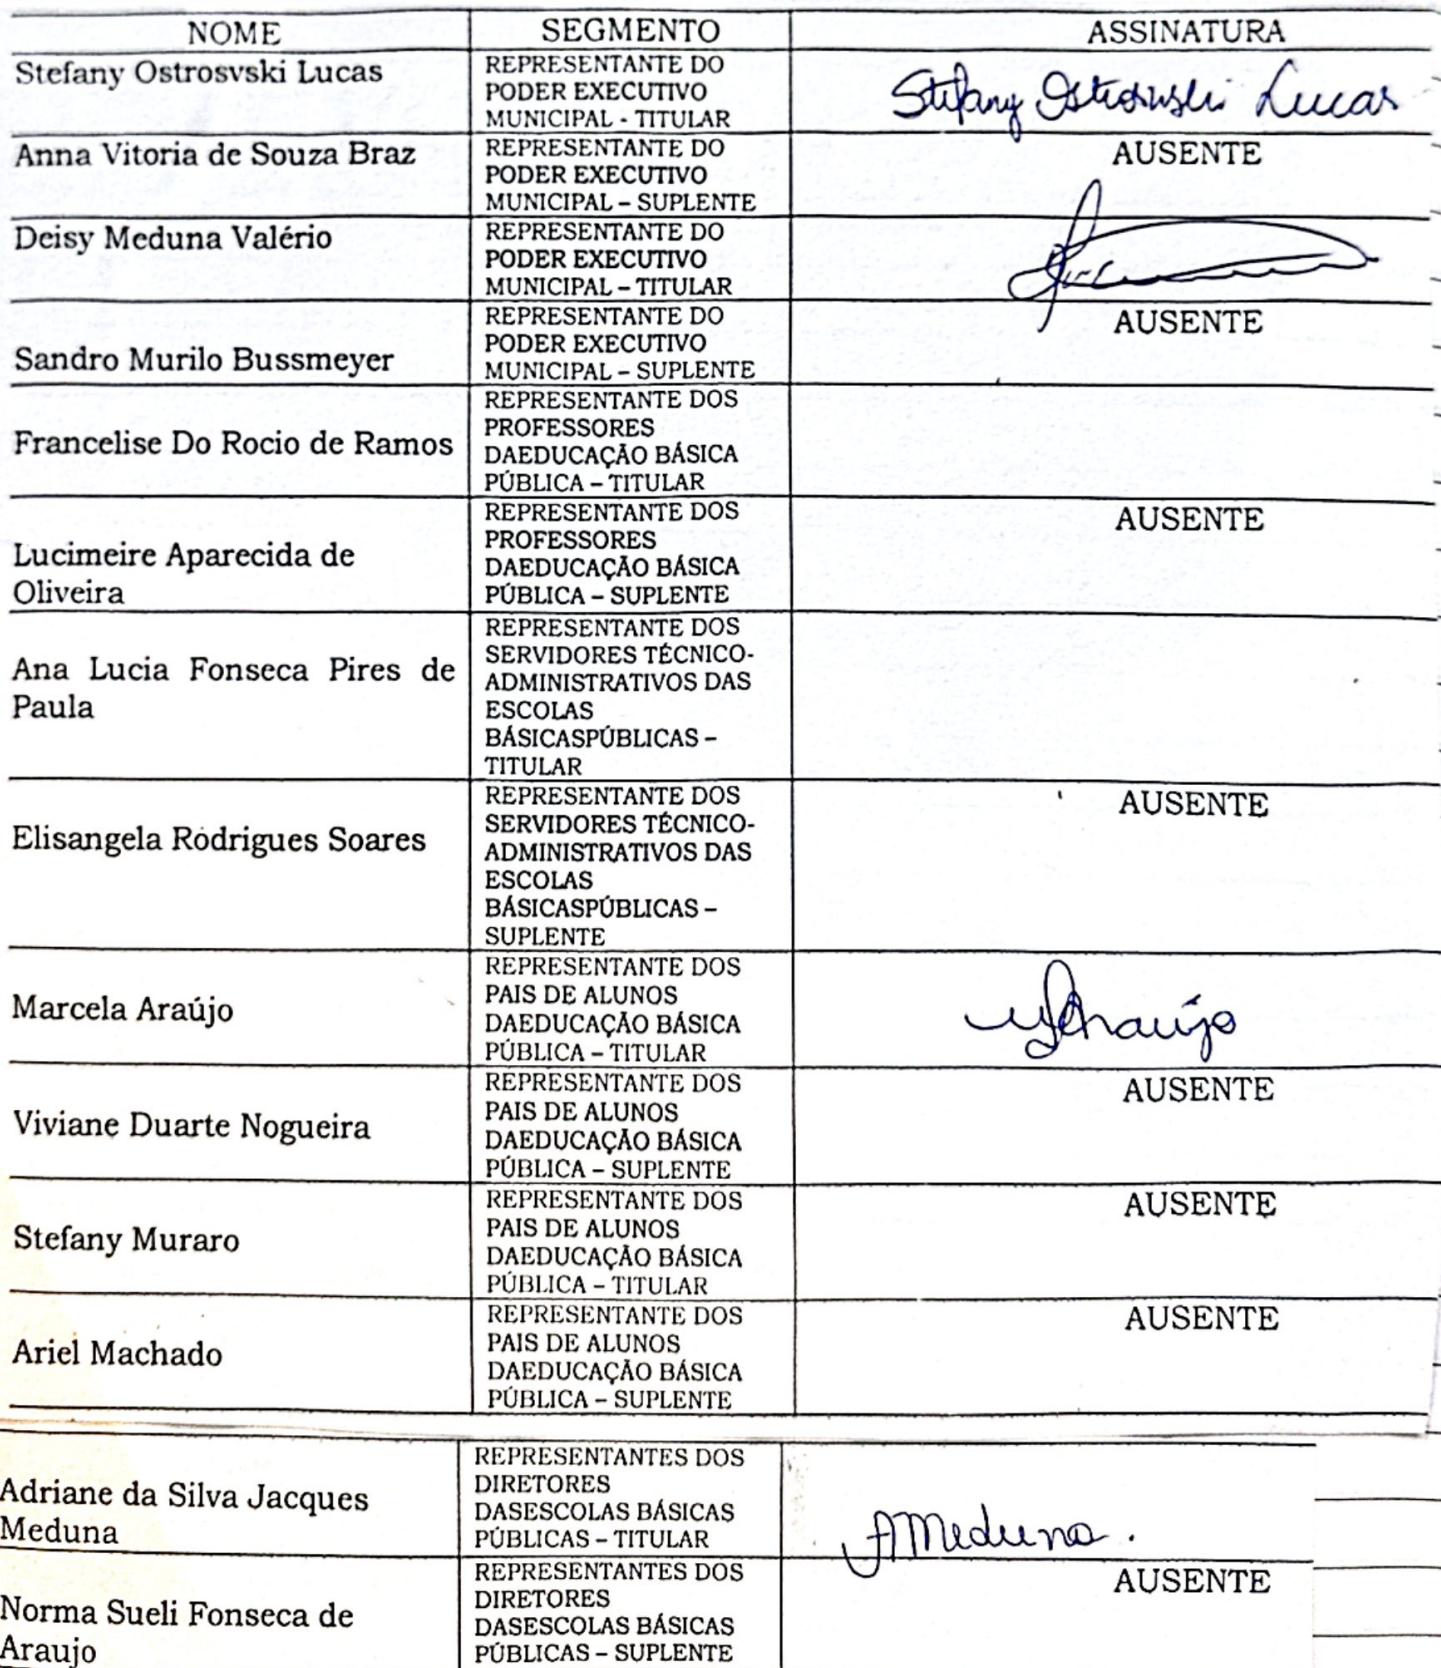 NOME SEGMENTO ASSINATURA
Stefany Ostrosvski Lucas
REPRESENTANTE DO
PODER EXECUTIVO
MUNICIPAL - TITULAR
Stefany Ostrosvski Lucas
Anna Vitoria de Souza Braz
REPRESENTANTE DO
PODER EXECUTIVO
MUNICIPAL – SUPLENTE
AUSENTE
Deisy Meduna Valério
REPRESENTANTE DO
PODER EXECUTIVO
MUNICIPAL – TITULAR
Sandro Murilo Bussmeyer
REPRESENTANTE DO
PODER EXECUTIVO
MUNICIPAL – SUPLENTE
AUSENTE
Francelise Do Rocio de Ramos
REPRESENTANTE DOS
PROFESSORES
DAEDUCAÇÃO BÁSICA
PÚBLICA – TITULAR
Lucimeire Aparecida de
Oliveira
REPRESENTANTE DOS
PROFESSORES
DAEDUCAÇÃO BÁSICA
PÚBLICA – SUPLENTE
AUSENTE
Ana Lucia Fonseca Pires de
Paula
REPRESENTANTE DOS
SERVIDORES TÉCNICO-
ADMINISTRATIVOS DAS
ESCOLAS
BÁSICASPÚBLICAS –
TITULAR
Elisangela Rodrigues Soares
REPRESENTANTE DOS
SERVIDORES TÉCNICO-
ADMINISTRATIVOS DAS
ESCOLAS
BÁSICASPÚBLICAS –
SUPLENTE
AUSENTE
Marcela Araújo
REPRESENTANTE DOS
PAIS DE ALUNOS
DAEDUCAÇÃO BÁSICA
PÚBLICA – TITULAR
MAraújo
Viviane Duarte Nogueira
REPRESENTANTE DOS
PAIS DE ALUNOS
DAEDUCAÇÃO BÁSICA
PÚBLICA – SUPLENTE
AUSENTE
Stefany Muraro
REPRESENTANTE DOS
PAIS DE ALUNOS
DAEDUCAÇÃO BÁSICA
PÚBLICA – TITULAR
AUSENTE
Ariel Machado
REPRESENTANTE DOS
PAIS DE ALUNOS
DAEDUCAÇÃO BÁSICA
PÚBLICA – SUPLENTE
AUSENTE
Adriane da Silva Jacques
Meduna
REPRESENTANTES DOS
DIRETORES
DASESCOLAS BÁSICAS
PÚBLICAS – TITULAR
AMeduna.
Norma Sueli Fonseca de
Araujo
REPRESENTANTES DOS
DIRETORES
DASESCOLAS BÁSICAS
PÚBLICAS – SUPLENTE
AUSENTE